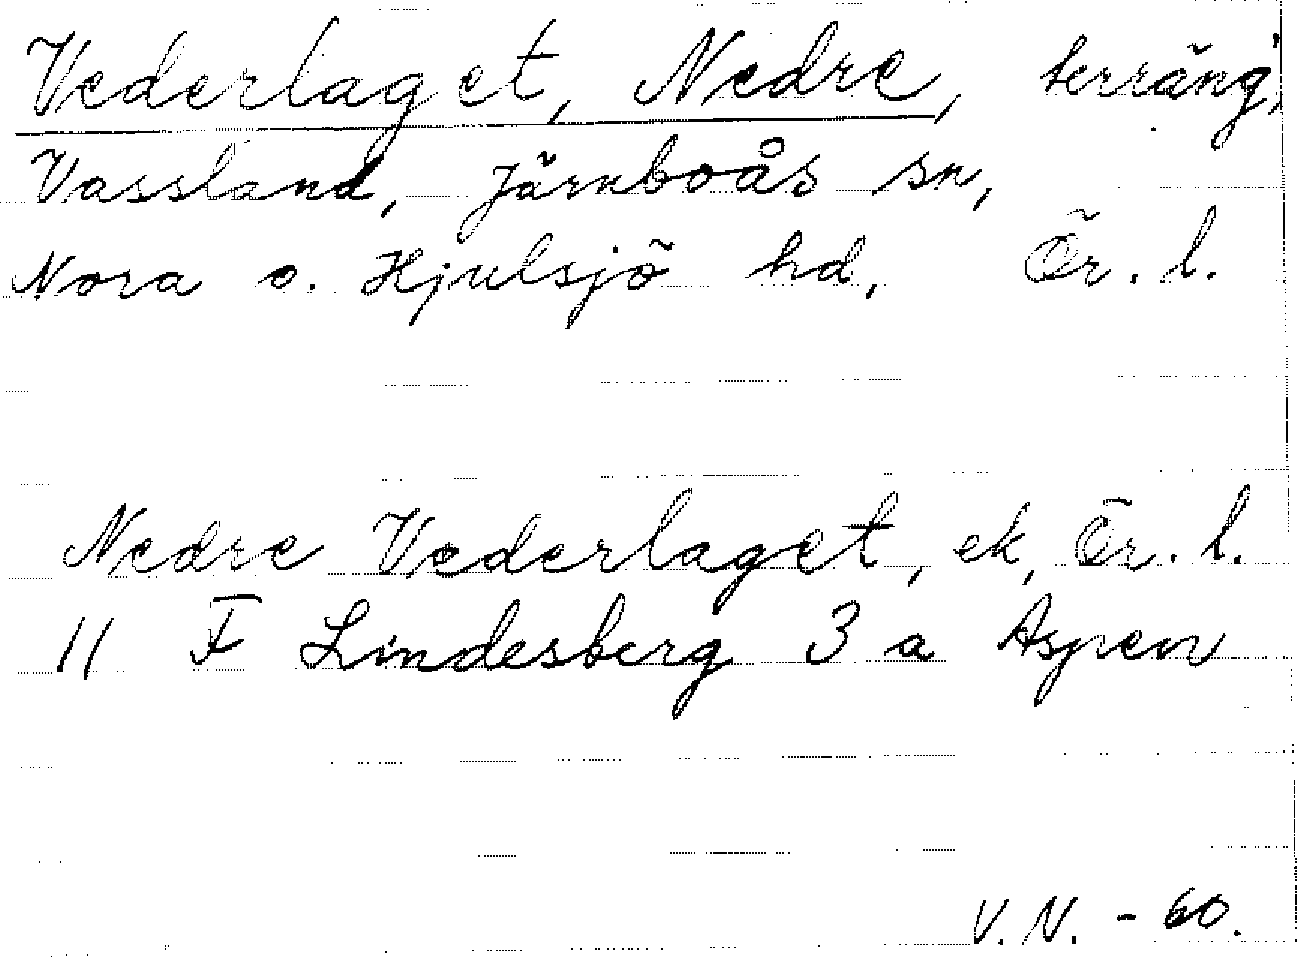 Vederlaget, Nedre, terräng,
Vassland, Järnboås sn,
Nora o. Hjulsjö hd, Ör. l.
Nedre Vederlaget, ek, Ör. l.
11 F Lindesberg 3 a Aspen
V.N. - 60.